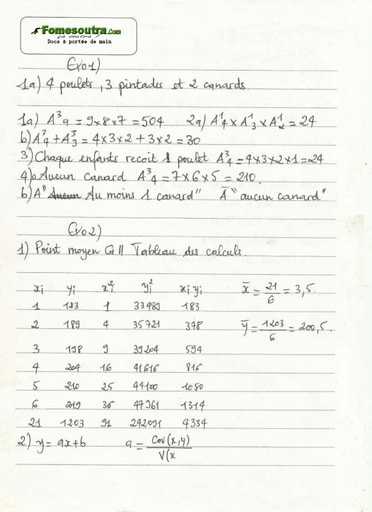 Fomesoutra.com
ça soutra !
Docs à portée de main
Exo 1)
1a) 4 poulets, 3 pintades et 2 canards
1a) A³9 = 9x8x7 = 504 2a) A¹4 x A¹3 x A¹2 = 24
b) A³4 + A³3 = 4x3x2 + 3x2 = 30
3) Chaque enfants recoit 1 poulet A³4 = 4x3x2x1 = 24
4)a Aucun canard A³4 = 7x6x5 = 210.
b) A" Au moins 1 canard" Ā "aucun canard"
Exo 2)
1) Point moyen G || Tableau des calculs.
xi yi x²i y²i xi yi x̄ = 21/6 = 3,5
1 183 1 33489 183
2 189 4 35721 378 ȳ = 1203/6 = 200,5.
3 198 9 39204 594
4 204 16 41616 816
5 210 25 44100 1050
6 219 36 47961 1314
21 1203 91 242091 4334
2) y = ax+b a = Cov(x,y)/V(x